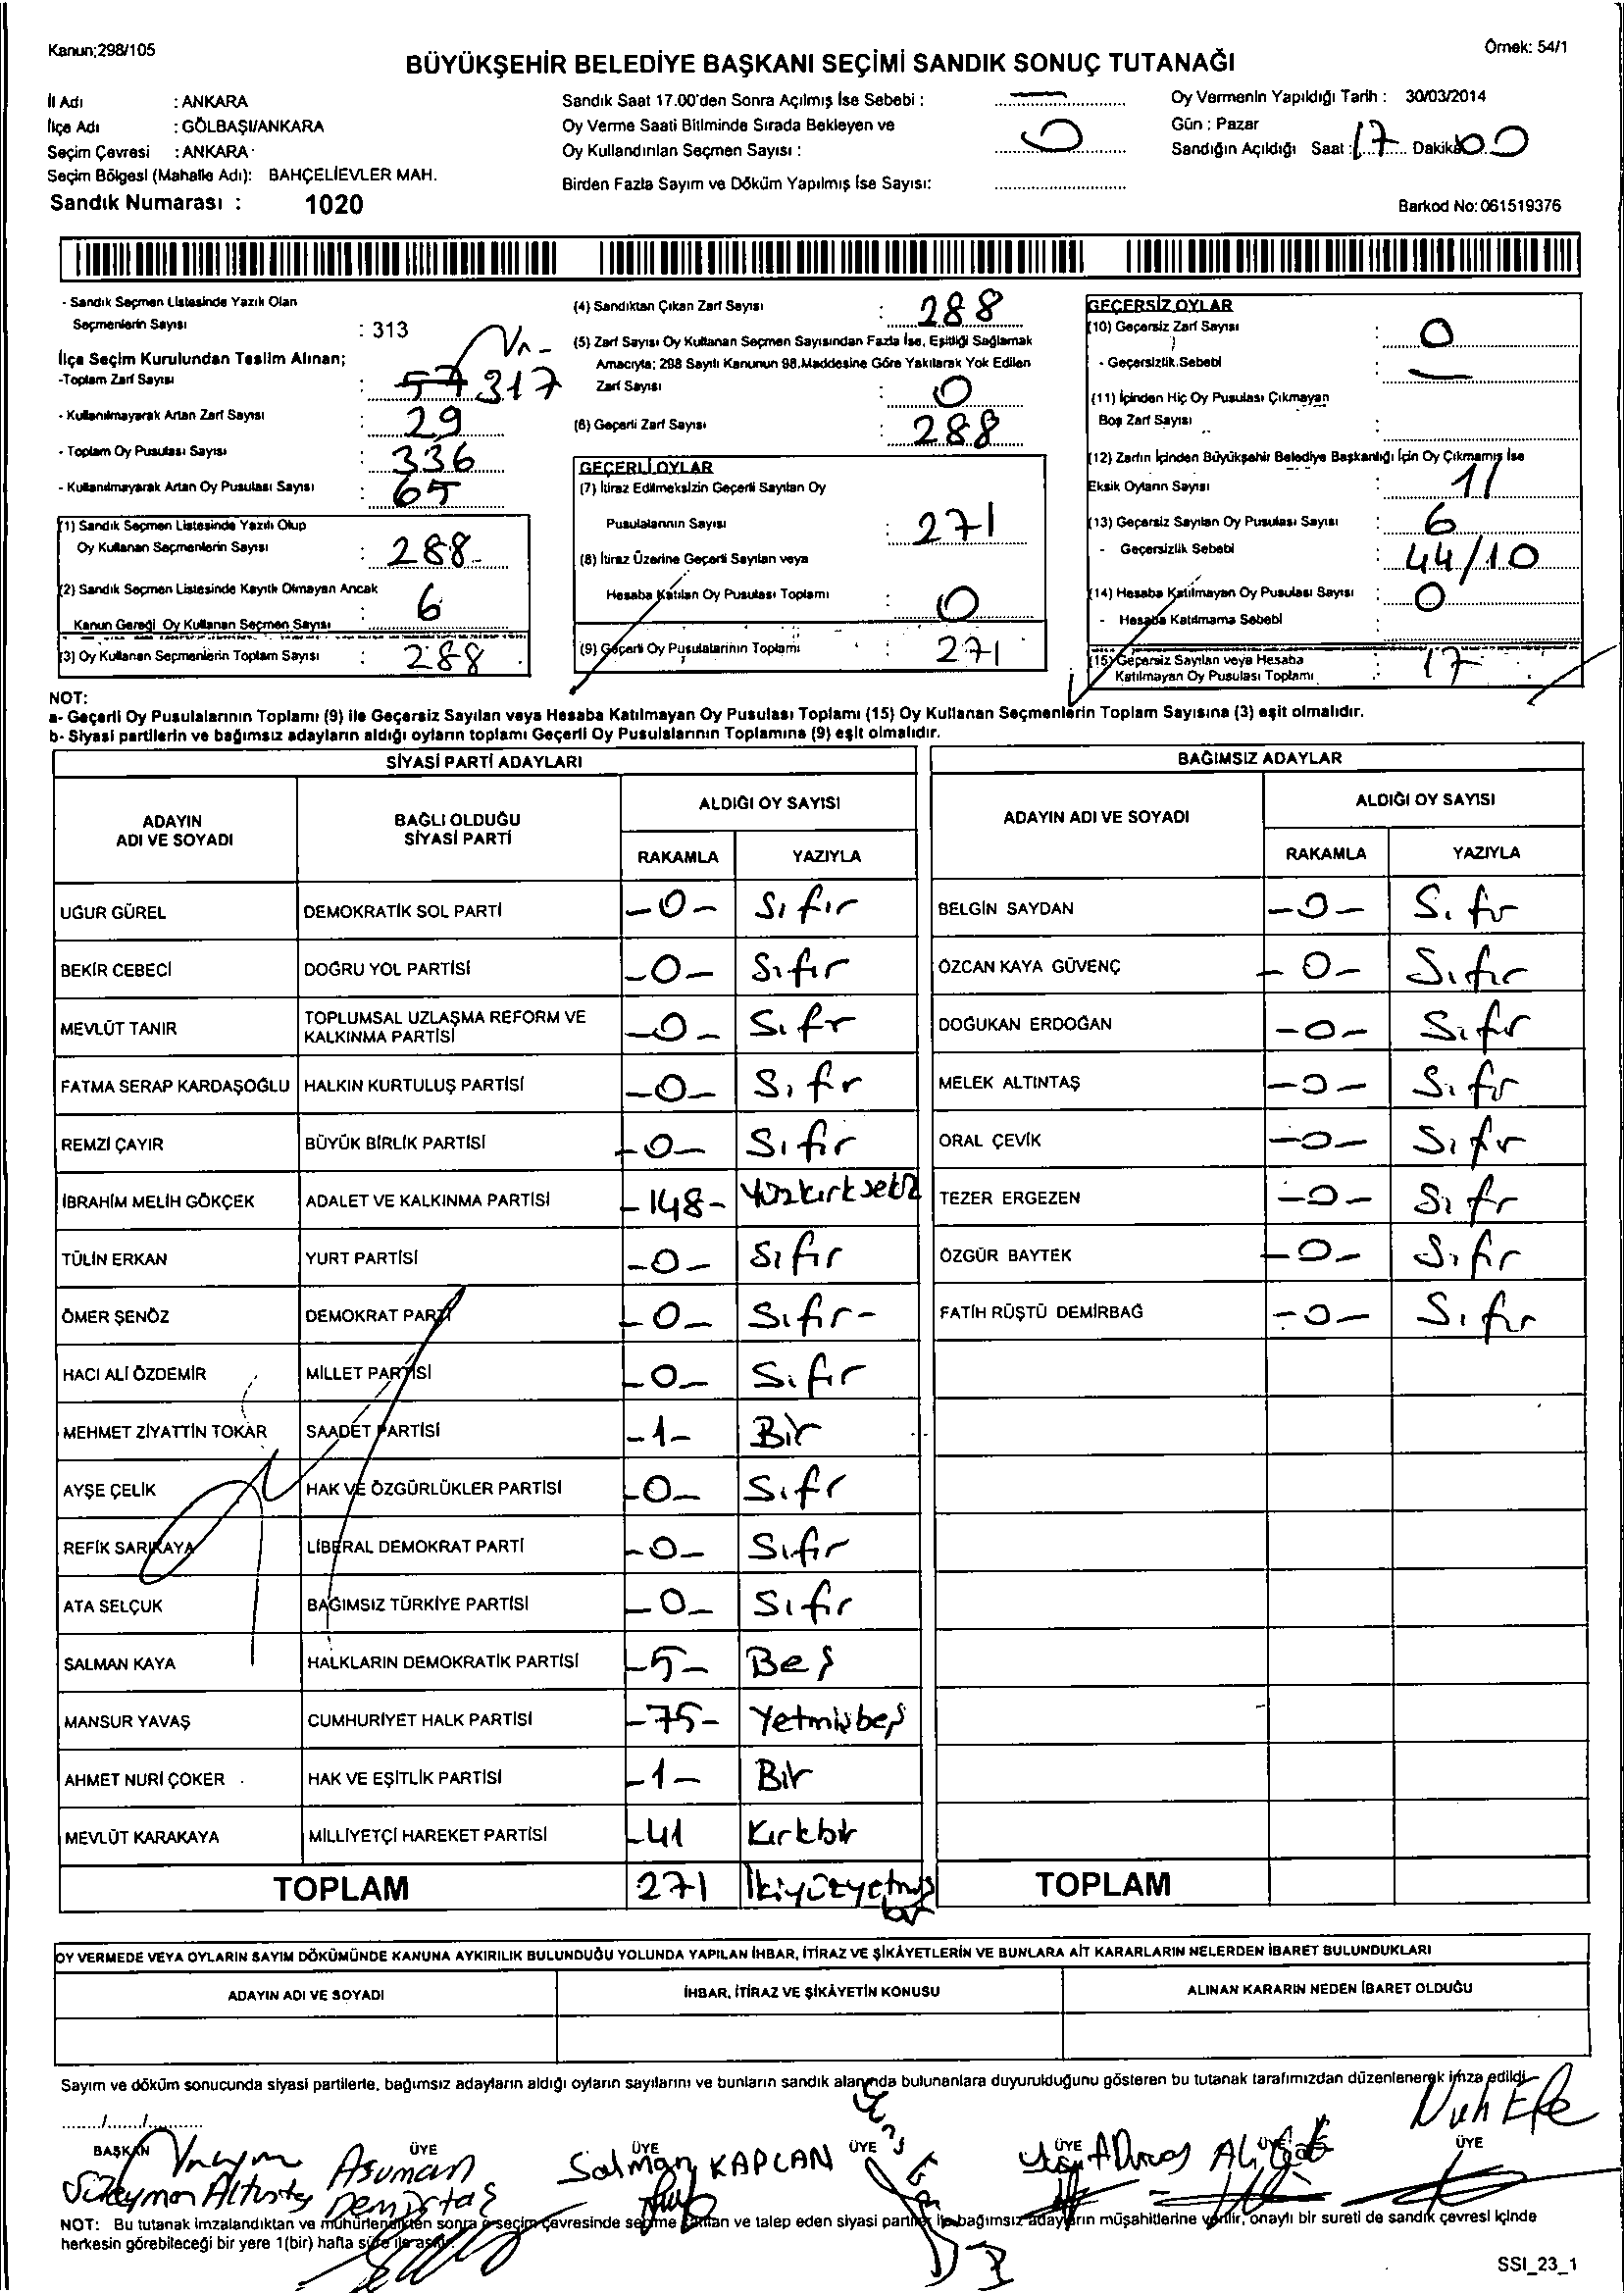 Kanun;298/105
Örnek: 54/1
BÜYÜKŞEHİR BELEDİYE BAŞKANI SEÇİMİ SANDIK SONUÇ TUTANAĞI
İl Adı : ANKARA
İlçe Adı : GÖLBAŞI/ANKARA
Seçim Çevresi : ANKARA
Seçim Bölgesi (Mahalle Adı): BAHÇELİEVLER MAH.
Sandık Numarası : 1020
Sandık Saat 17.00'den Sonra Açılmış İse Sebebi : —
Oy Verme Saati Bitiminde Sırada Bekleyen ve
Oy Kullandırılan Seçmen Sayısı : 0
Birden Fazla Sayım ve Döküm Yapılmış İse Sayısı:
Oy Vermenin Yapıldığı Tarih : 30/03/2014
Gün : Pazar
Sandığın Açıldığı Saat : 17 Dakika 00
Barkod No:061519376
- Sandık Seçmen Listesinde Yazılı Olan
Seçmenlerin Sayısı : 313
İlçe Seçim Kurulundan Teslim Alınan;
-Toplam Zarf Sayısı : 317
- Kullanılmayarak Artan Zarf Sayısı : 29
- Toplam Oy Pusulası Sayısı : 336
- Kullanılmayarak Artan Oy Pusulası Sayısı : 65
(1) Sandık Seçmen Listesinde Yazılı Olup
Oy Kullanan Seçmenlerin Sayısı : 288
(2) Sandık Seçmen Listesinde Kayıtlı Olmayan Ancak
Kanun Gereği Oy Kullanan Seçmen Sayısı 6
(3) Oy Kullanan Seçmenlerin Toplam Sayısı : 288
(4) Sandıktan Çıkan Zarf Sayısı : 288
(5) Zarf Sayısı Oy Kullanan Seçmen Sayısından Fazla İse, Eşitliği Sağlamak
Amacıyla; 298 Sayılı Kanunun 98.Maddesine Göre Yakılarak Yok Edilen
Zarf Sayısı : 0
(6) Geçerli Zarf Sayısı : 288
GEÇERLİ OYLAR
(7) İtiraz Edilmeksizin Geçerli Sayılan Oy
Pusulalarının Sayısı : 271
(8) İtiraz Üzerine Geçerli Sayılan veya
Hesaba Katılan Oy Pusulası Toplamı : 0
(9) Geçerli Oy Pusulalarının Toplamı : 271
GEÇERSİZ OYLAR
(10) Geçersiz Zarf Sayısı : 0
- Geçersizlik Sebebi : —
(11) İçinden Hiç Oy Pusulası Çıkmayan
Boş Zarf Sayısı :
(12) Zarfın İçinden Büyükşehir Belediye Başkanlığı İçin Oy Çıkmamış İse
Eksik Oyların Sayısı : 11
(13) Geçersiz Sayılan Oy Pusulası Sayısı : 6
- Geçersizlik Sebebi : 44/10
(14) Hesaba Katılmayan Oy Pusulası Sayısı : 0
- Hesaba Katılmama Sebebi :
(15) Geçersiz Sayılan veya Hesaba
Katılmayan Oy Pusulası Toplamı : 17
NOT:
a- Geçerli Oy Pusulalarının Toplamı (9) ile Geçersiz Sayılan veya Hesaba Katılmayan Oy Pusulası Toplamı (15) Oy Kullanan Seçmenlerin Toplam Sayısına (3) eşit olmalıdır.
b- Siyasi partilerin ve bağımsız adayların aldığı oyların toplamı Geçerli Oy Pusulalarının Toplamına (9) eşit olmalıdır.
SİYASİ PARTİ ADAYLARI
ADAYIN ADI VE SOYADI BAĞLI OLDUĞU SİYASİ PARTİ ALDIĞI OY SAYISI
RAKAMLA YAZIYLA
UĞUR GÜREL DEMOKRATİK SOL PARTİ -0- Sıfır
BEKİR CEBECİ DOĞRU YOL PARTİSİ -0- Sıfır
MEVLÜT TANIR TOPLUMSAL UZLAŞMA REFORM VE KALKINMA PARTİSİ -0- Sıfr
FATMA SERAP KARDAŞOĞLU HALKIN KURTULUŞ PARTİSİ -0- Sıfr
REMZİ ÇAYIR BÜYÜK BİRLİK PARTİSİ -0- Sıfır
İBRAHİM MELİH GÖKÇEK ADALET VE KALKINMA PARTİSİ -148- Yüzkırksekiz
TÜLİN ERKAN YURT PARTİSİ -0- Sıfır
ÖMER ŞENÖZ DEMOKRAT PARTİ -0- Sıfır-
HACI ALİ ÖZDEMİR MİLLET PARTİSİ -0- Sıfır
MEHMET ZİYATTİN TOKAR SAADET PARTİSİ -1- Bir
AYŞE ÇELİK HAK VE ÖZGÜRLÜKLER PARTİSİ -0- Sıfr
REFİK SARIKAYA LİBERAL DEMOKRAT PARTİ -0- Sıfır
ATA SELÇUK BAĞIMSIZ TÜRKİYE PARTİSİ -0- Sıfır
SALMAN KAYA HALKLARIN DEMOKRATİK PARTİSİ -5- Beş
MANSUR YAVAŞ CUMHURİYET HALK PARTİSİ -75- Yetmişbeş
AHMET NURİ ÇOKER HAK VE EŞİTLİK PARTİSİ -1- Bir
MEVLÜT KARAKAYA MİLLİYETÇİ HAREKET PARTİSİ -41 Kırkbir
TOPLAM 271 İkiyüzyetmiş
bir
BAĞIMSIZ ADAYLAR
ADAYIN ADI VE SOYADI ALDIĞI OY SAYISI
RAKAMLA YAZIYLA
BELGİN SAYDAN -0- Sıfır
ÖZCAN KAYA GÜVENÇ -0- Sıfır
DOĞUKAN ERDOĞAN -0- Sıfır
MELEK ALTINTAŞ -0- Sıfır
ORAL ÇEVİK -0- Sıfır
TEZER ERGEZEN -0- Sıfr
ÖZGÜR BAYTEK -0- Sıfır
FATİH RÜŞTÜ DEMİRBAĞ -0- Sıfır
TOPLAM
OY VERMEDE VEYA OYLARIN SAYIM DÖKÜMÜNDE KANUNA AYKIRILIK BULUNDUĞU YOLUNDA YAPILAN İHBAR, İTİRAZ VE ŞİKÂYETLERİN VE BUNLARA AİT KARARLARIN NELERDEN İBARET BULUNDUKLARI
ADAYIN ADI VE SOYADI İHBAR, İTİRAZ VE ŞİKÂYETİN KONUSU ALINAN KARARIN NEDEN İBARET OLDUĞU
Sayım ve döküm sonucunda siyasi partilerle, bağımsız adayların aldığı oyların sayılarını ve bunların sandık alanında bulunanlara duyurulduğunu gösteren bu tutanak tarafımızdan düzenlenerek imza edildi.
....../....../......
BAŞKAN ÜYE ÜYE ÜYE ÜYE ÜYE ÜYE
Süleyman Asuman Demirtaş Salman KAPLAN Nuh Efe
NOT: Bu tutanak imzalandıktan ve mühürlendikten sonra o seçim çevresinde seçime katılan ve talep eden siyasi partiler ile bağımsız adayların müşahitlerine verilir, onaylı bir sureti de sandık çevresi içinde
herkesin görebileceği bir yere 1(bir) hafta süre ile asılır.
SSI_23_1